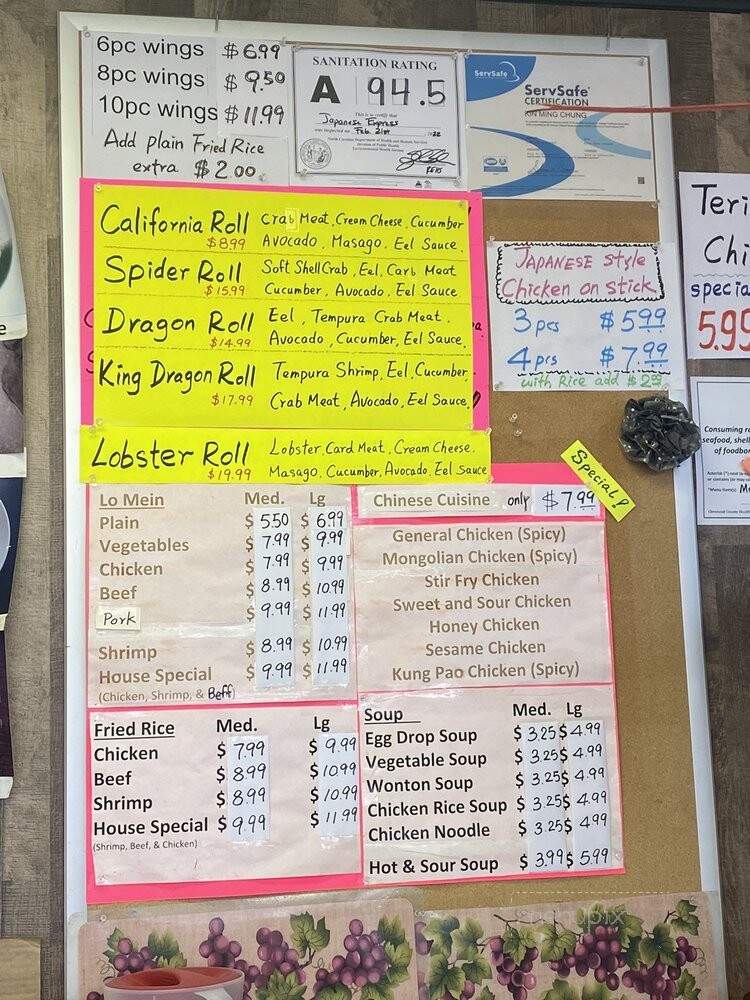 6pc wings $6.99
8pc wings $9.50
10pc wings $11.99
Add plain Fried Rice
extra $2.00
SANITATION RATING
A 94.5
This is to certify that
Japanese Express
was inspected on Feb. 21st
North Carolina Department of Health and Human Services
Division of Public Health
Environmental Health Section
ServSafe
ServSafe®
CERTIFICATION
KIN MING CHUNG
California Roll $8.99 Crab Meat, Cream Cheese, Cucumber
Avocado, Masago, Eel Sauce,
Spider Roll $15.99 Soft Shell Crab, Eel, Carb Meat
Cucumber, Avocado, Eel Sauce
Dragon Roll $14.99 Eel, Tempura Crab Meat,
Avocado, Cucumber, Eel Sauce,
King Dragon Roll $17.99 Tempura Shrimp, Eel, Cucumber,
Crab Meat, Avocado, Eel Sauce,
Lobster Roll $19.99 Lobster, Card Meat, Cream Cheese,
Masago, Cucumber, Avocado, Eel Sauce
JAPANESE style
Chicken on stick
3 pcs $5.99
4 pcs $7.99
with Rice add $2.99
Teri
Chi
specia
5.99
Consuming ra
seafood, shell
of foodbor
Special!
Lo Mein Med. Lg
Plain $5.50 $6.99
Vegetables $7.99 $9.99
Chicken $7.99 $9.99
Beef $8.99 $10.99
Pork $9.99 $11.99
Shrimp $8.99 $10.99
House Special $9.99 $11.99
(Chicken, Shrimp, & Beff)
Chinese Cuisine only $7.99
General Chicken (Spicy)
Mongolian Chicken (Spicy)
Stir Fry Chicken
Sweet and Sour Chicken
Honey Chicken
Sesame Chicken
Kung Pao Chicken (Spicy)
Fried Rice Med. Lg
Chicken $7.99 $9.99
Beef $8.99 $10.99
Shrimp $8.99 $10.99
House Special $9.99 $11.99
(Shrimp, Beef, & Chicken)
Soup Med. Lg
Egg Drop Soup $3.25 $4.99
Vegetable Soup $3.25 $4.99
Wonton Soup $3.25 $4.99
Chicken Rice Soup $3.25 $4.99
Chicken Noodle $3.25 $4.99
Hot & Sour Soup $3.99 $5.99